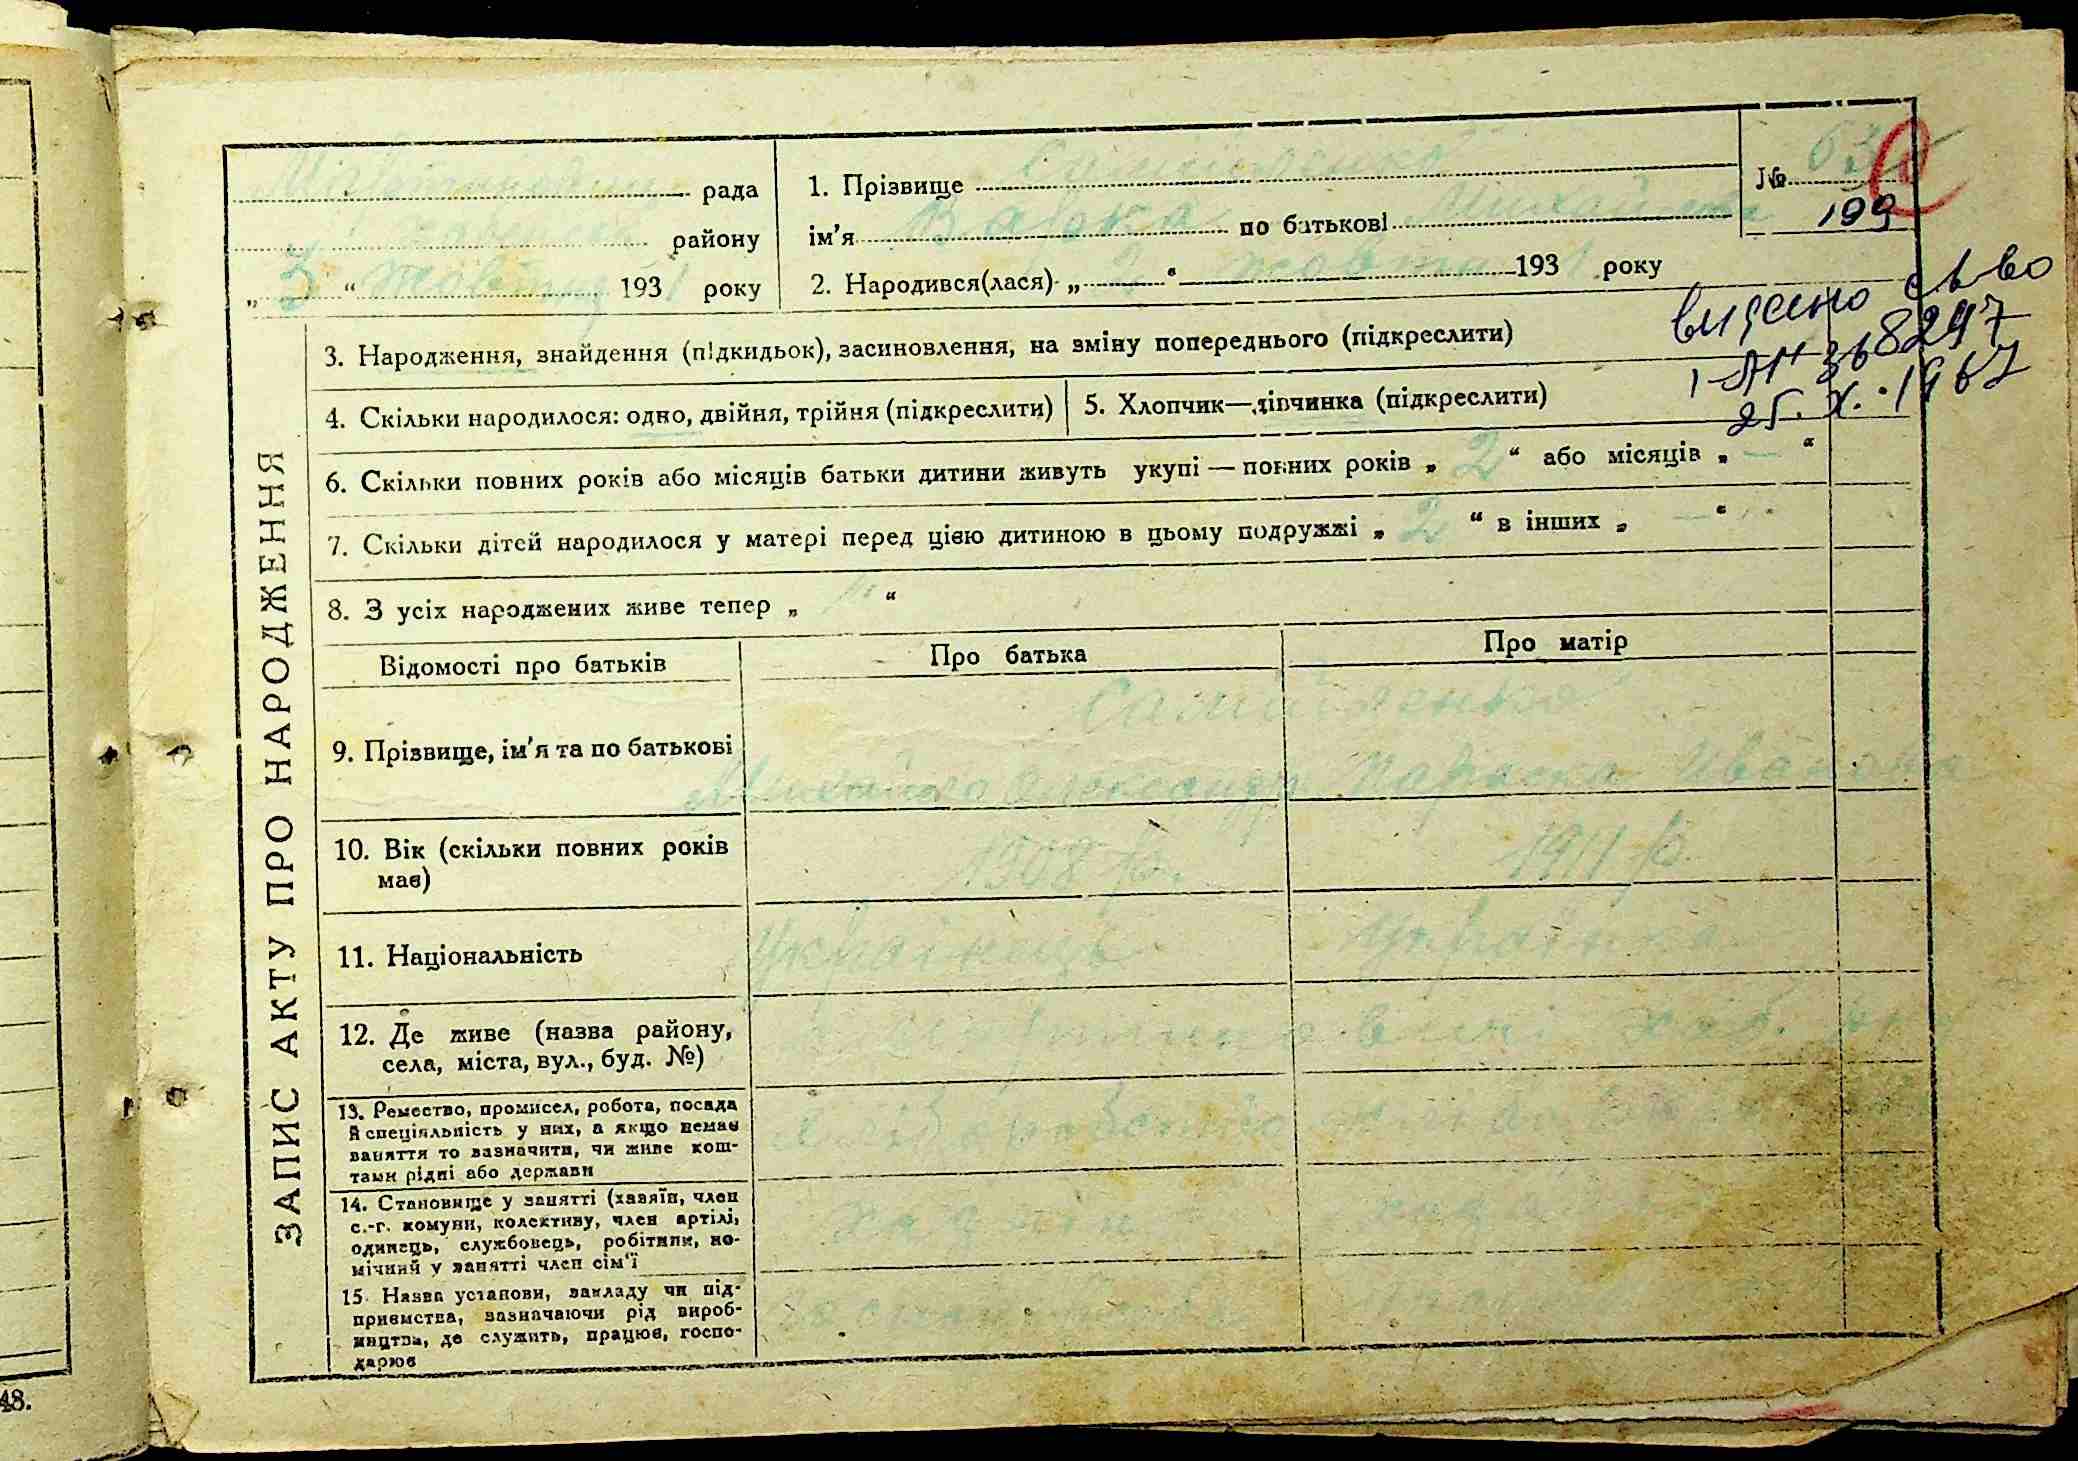 рада
1. Прізвище Самійленко
№ 63
199
району
ім'я Варка по батькові Михайлова
„ 3 “ жовтня 1931 року
2. Народився(лася) „ 2 “ жовтня 1931 року
видано св-во
368247
25.X.1967
3. Народження, знайдення (підкидьок), засиновлення, на зміну попереднього (підкреслити)
4. Скільки народилося: одно, двійня, трійня (підкреслити)
5. Хлопчик—дівчинка (підкреслити)
6. Скільки повних років або місяців батьки дитини живуть укупі — повних років „ 2 “ або місяців „ — “
7. Скільки дітей народилося у матері перед цією дитиною в цьому подружжі „ 2 “ в інших „ — “
8. З усіх народжених живе тепер „ “
ЗАПИС АКТУ ПРО НАРОДЖЕННЯ
Відомості про батьків
Про батька
Про матір
Самійленко
9. Прізвище, ім'я та по батькові
Михайло Олександр Параска Іванова
10. Вік (скільки повних років
має)
1908 р.
1911 р.
11. Національність
Українець
Українка
12. Де живе (назва району,
села, міста, вул., буд. №)
13. Ремество, промисел, робота, посада
й спеціяльність у них, а якщо немає
заняття то зазначити, чи живе кош-
тами рідні або держави
14. Становище у занятті (хазяїн, член
с.-г. комуни, колективу, член артілі,
одинець, службовець, робітник, по-
мічний у занятті член сім'ї
15. Назва установи, закладу чи під-
приємства, зазначаючи рід вироб-
ництва, де служить, працює, госпо-
дарює
48.